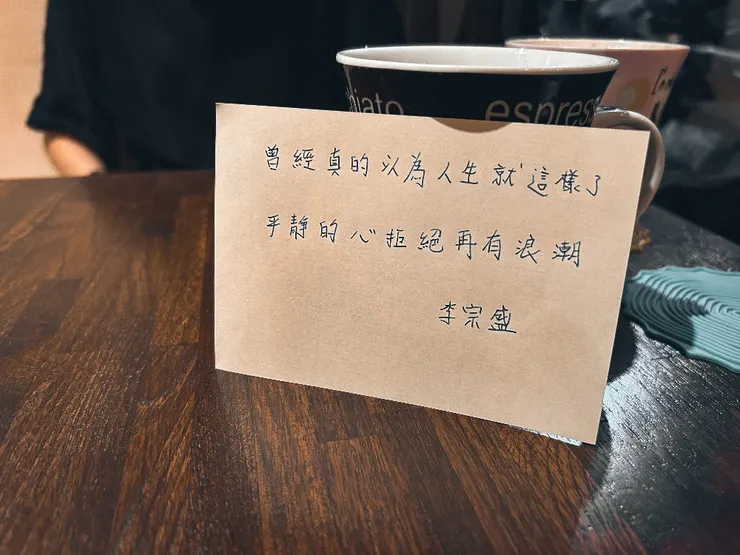 hiato
espress
曾經真的以為人生就這樣了
平靜的心拒絕再有浪潮
李宗盛